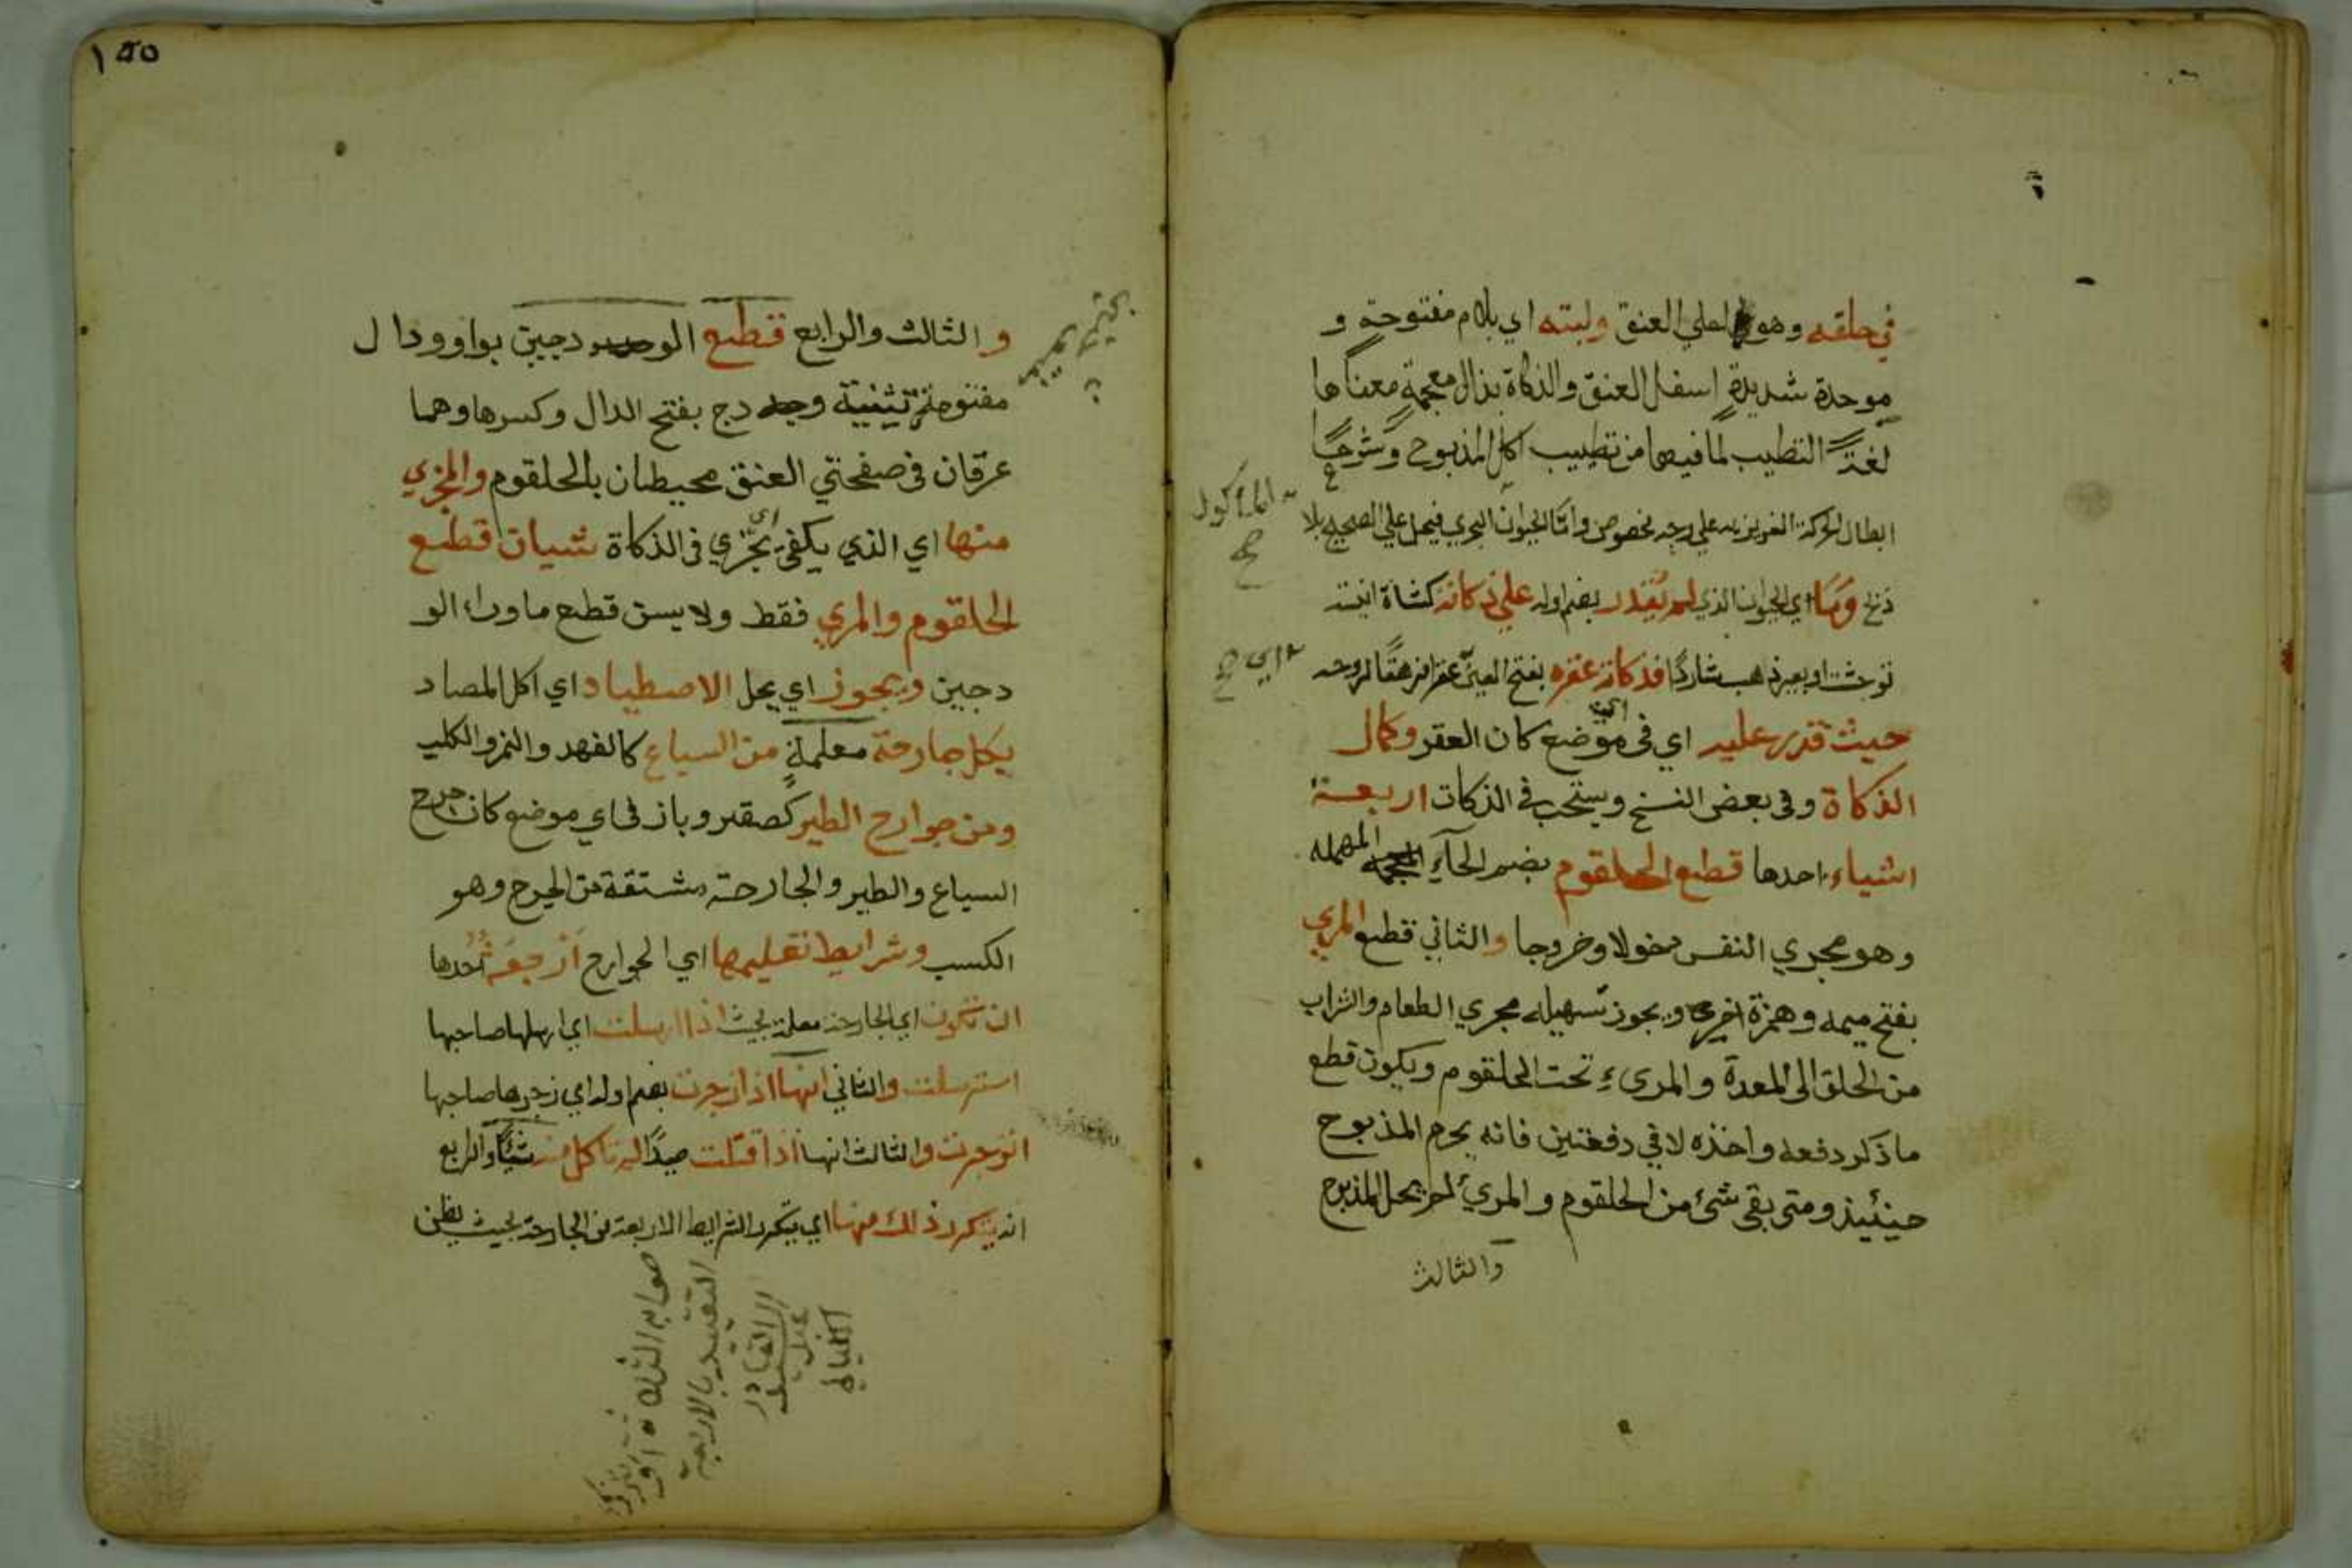 في حلقه وهو اعلى العنق ولبته اي بلام مفتوحة و
موحدة شديدة اسفل العنق والذكاة بذال معجمة معناها
لغة التطيب لما فيها من تطييب اكل المذبوح وشرعا
ابطال الحركة الغريزيه على وجه مخصوص واما الحيوان البحري فيحل على الصحيح بلا
الماكول
صح
ذبح وما اي الحيوان الذي لم يقدر بضم اوله على ذكاته كشاة انسية
توحشت او بعير ذهب شاردا فذكاته عقره بفتح العين عقرا مزهقا لروحه
اي صح
حيث قدر عليه اي في اي موضع كان العقر وكمال
الذكاة وفي بعض النسخ ويستحب في الذكات اربعة
اشياء احدها قطع الحلقوم بضم الحآء المهمله
وهو مجري النفس دخولا وخروجا والثاني قطع المري
بفتح ميمه وهمزة اخره ويجوز تسهيله مجري الطعام والشراب
من الحلق الى المعدة والمرىء تحت الحلقوم ويكون قطع
ما ذكر دفعه واحذه لا في دفعتين فانه يحرم المذبوح
حينئيذ ومتى بقى شئ من الحلقوم والمرئ لم يحل المذبوح
والثالث
١٥٥
والثالث والرابع قطع الودجين بواو ودال
مفتوحة تثنية ودج بفتح الدال وكسرها وهما
عرقان في صفحتي العنق محيطان بالحلقوم والمجزي
منها اي الذي يكفى اي يجزي في الذكاة شيان قطع
الحلقوم والمري فقط ولا يسن قطع ما وراء الو
دجين ويجوز اي يحل الاصطياد اي اكل المصاد
بكل جارحة معلمة من السباع كالفهد والنمر والكلب
ومن جوارح الطير كصقر وباز في اي موضع كان جرح
السباع والطير والجارحة مشتقة من الجرح وهو
الكسب وشرايط تعليمها اي الجوارح اربعة احدها
ان تكون اي الجارحة معلمة بحيث اذا ارسلت اي ارسلها صاحبها
استرسلت والثاني انها اذا زجرت بضم اوله اي زجرها صاحبها
انزجرت والثالث انها اذا قتلت صيدا لم تاكل منه شيئا والرابع
ان يتكرر ذلك منها اي يتكرر الشرايط الاربعة من الجارحة بحيث يظن
صوابه الثلاثة
التقييد بالاربعة